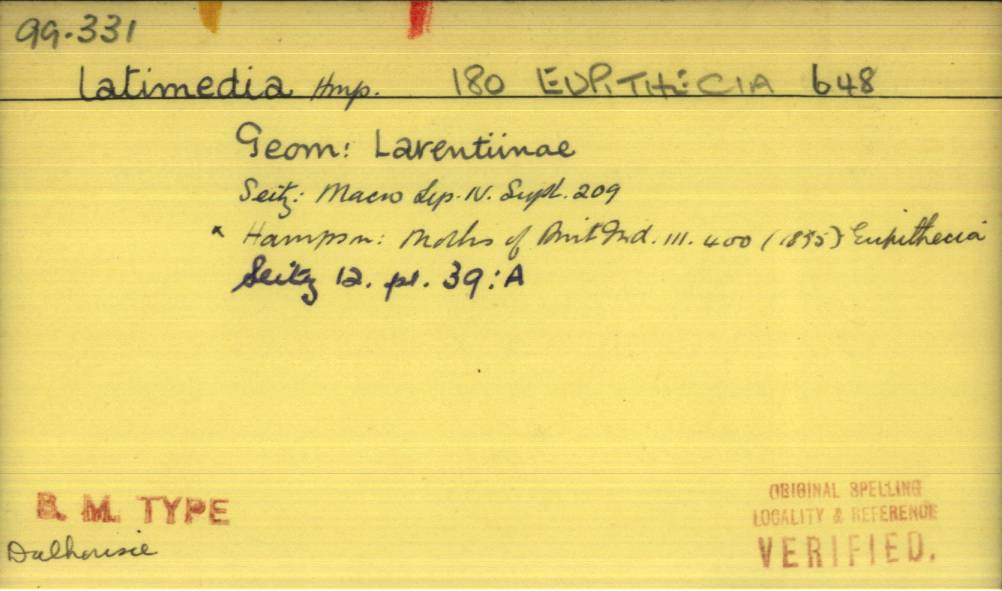 99.331
latimedia Hmp. 180 EUPITHECIA 648
Geom: Larentiinae
Seitz: Macro Lep. IV. Suppl. 209
× Hampson: Moths of Brit Ind. III. 400 (1895) Eupithecia
Seitz 12. pl. 39:A
B. M. TYPE
Dalhousie
ORIGINAL SPELLING
LOCALITY & REFERENCE
VERIFIED.